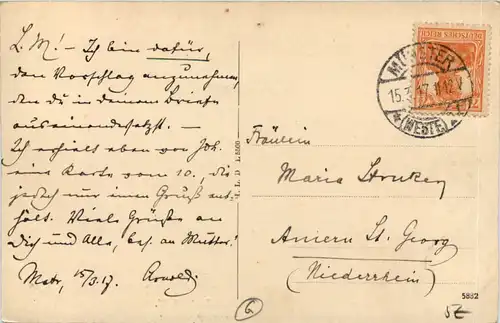 L. M! - Ich bin dafür,
den Vorschlag anzunehmen,
den du in deinem Briefe
auseinandersetzst. -
Ich erhielt eben von Joh.
eine Karte vom 10., die
jedoch nur einen Gruß ent-
hält. Viele Grüße an
Dich und Alle, bes. an Mutter!
Mstr, 15/3.17. Arnold.
DEUTSCHES REICH
MÜNSTER
(WESTF.)
Fräulein
Maria
Amern St. Georg
(Niederrhein)
5882
6
5